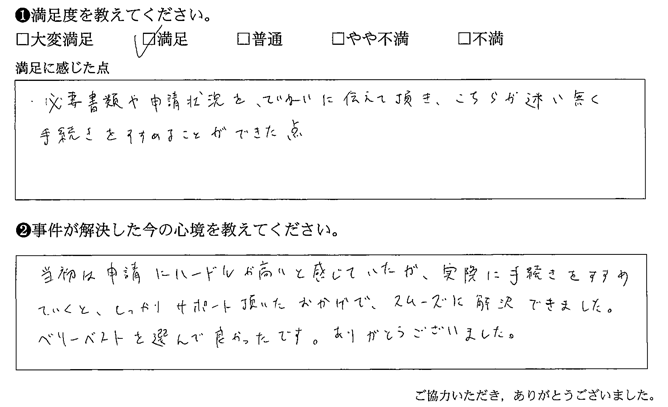 ❶満足度を教えてください。
□大変満足 ☑満足 □普通 □やや不満 □不満
満足に感じた点
・必要書類や申請状況を、ていねいに伝えて頂き、こちらが迷い無く
手続きをすすめることができた点
❷事件が解決した今の心境を教えてください。
当初は申請にハードルが高いと感じていたが、実際に手続きをすすめ
ていくと、しっかりサポート頂いたおかげで、スムーズに解決できました。
ベリーベストを選んで良かったです。ありがとうございました。
ご協力いただき，ありがとうございました。